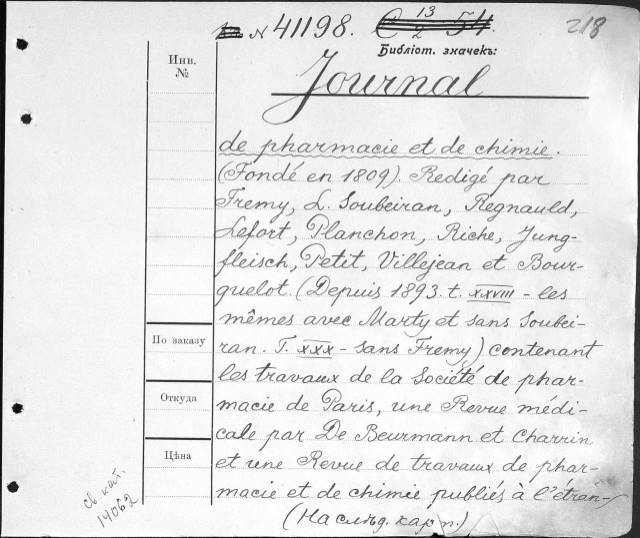 N 41198. C 13/2 54.
218
Библіот. значекъ:
Инв.
№
Journal
de pharmacie et de chimie.
(Fondé en 1809). Redigé par
Fremy, L. Soubeiran, Regnauld,
Lefort, Planchon, Riche, Jung-
fleisch, Petit, Villejean et Bour-
quelot. (Depuis 1893. t. XXVIII - les
mêmes avec Marty et sans Soubei-
ran. T. XXX - sans Fremy) contenant
les travaux de la Société de phar-
macie de Paris, une Revue médi-
cale par De Beurmann et Charrin
et une Revue de travaux de phar-
macie et de chimie publiés à l'étran-
(На слѣд. карт.)
По заказу
Откуда
Цѣна
св. кат.
14062